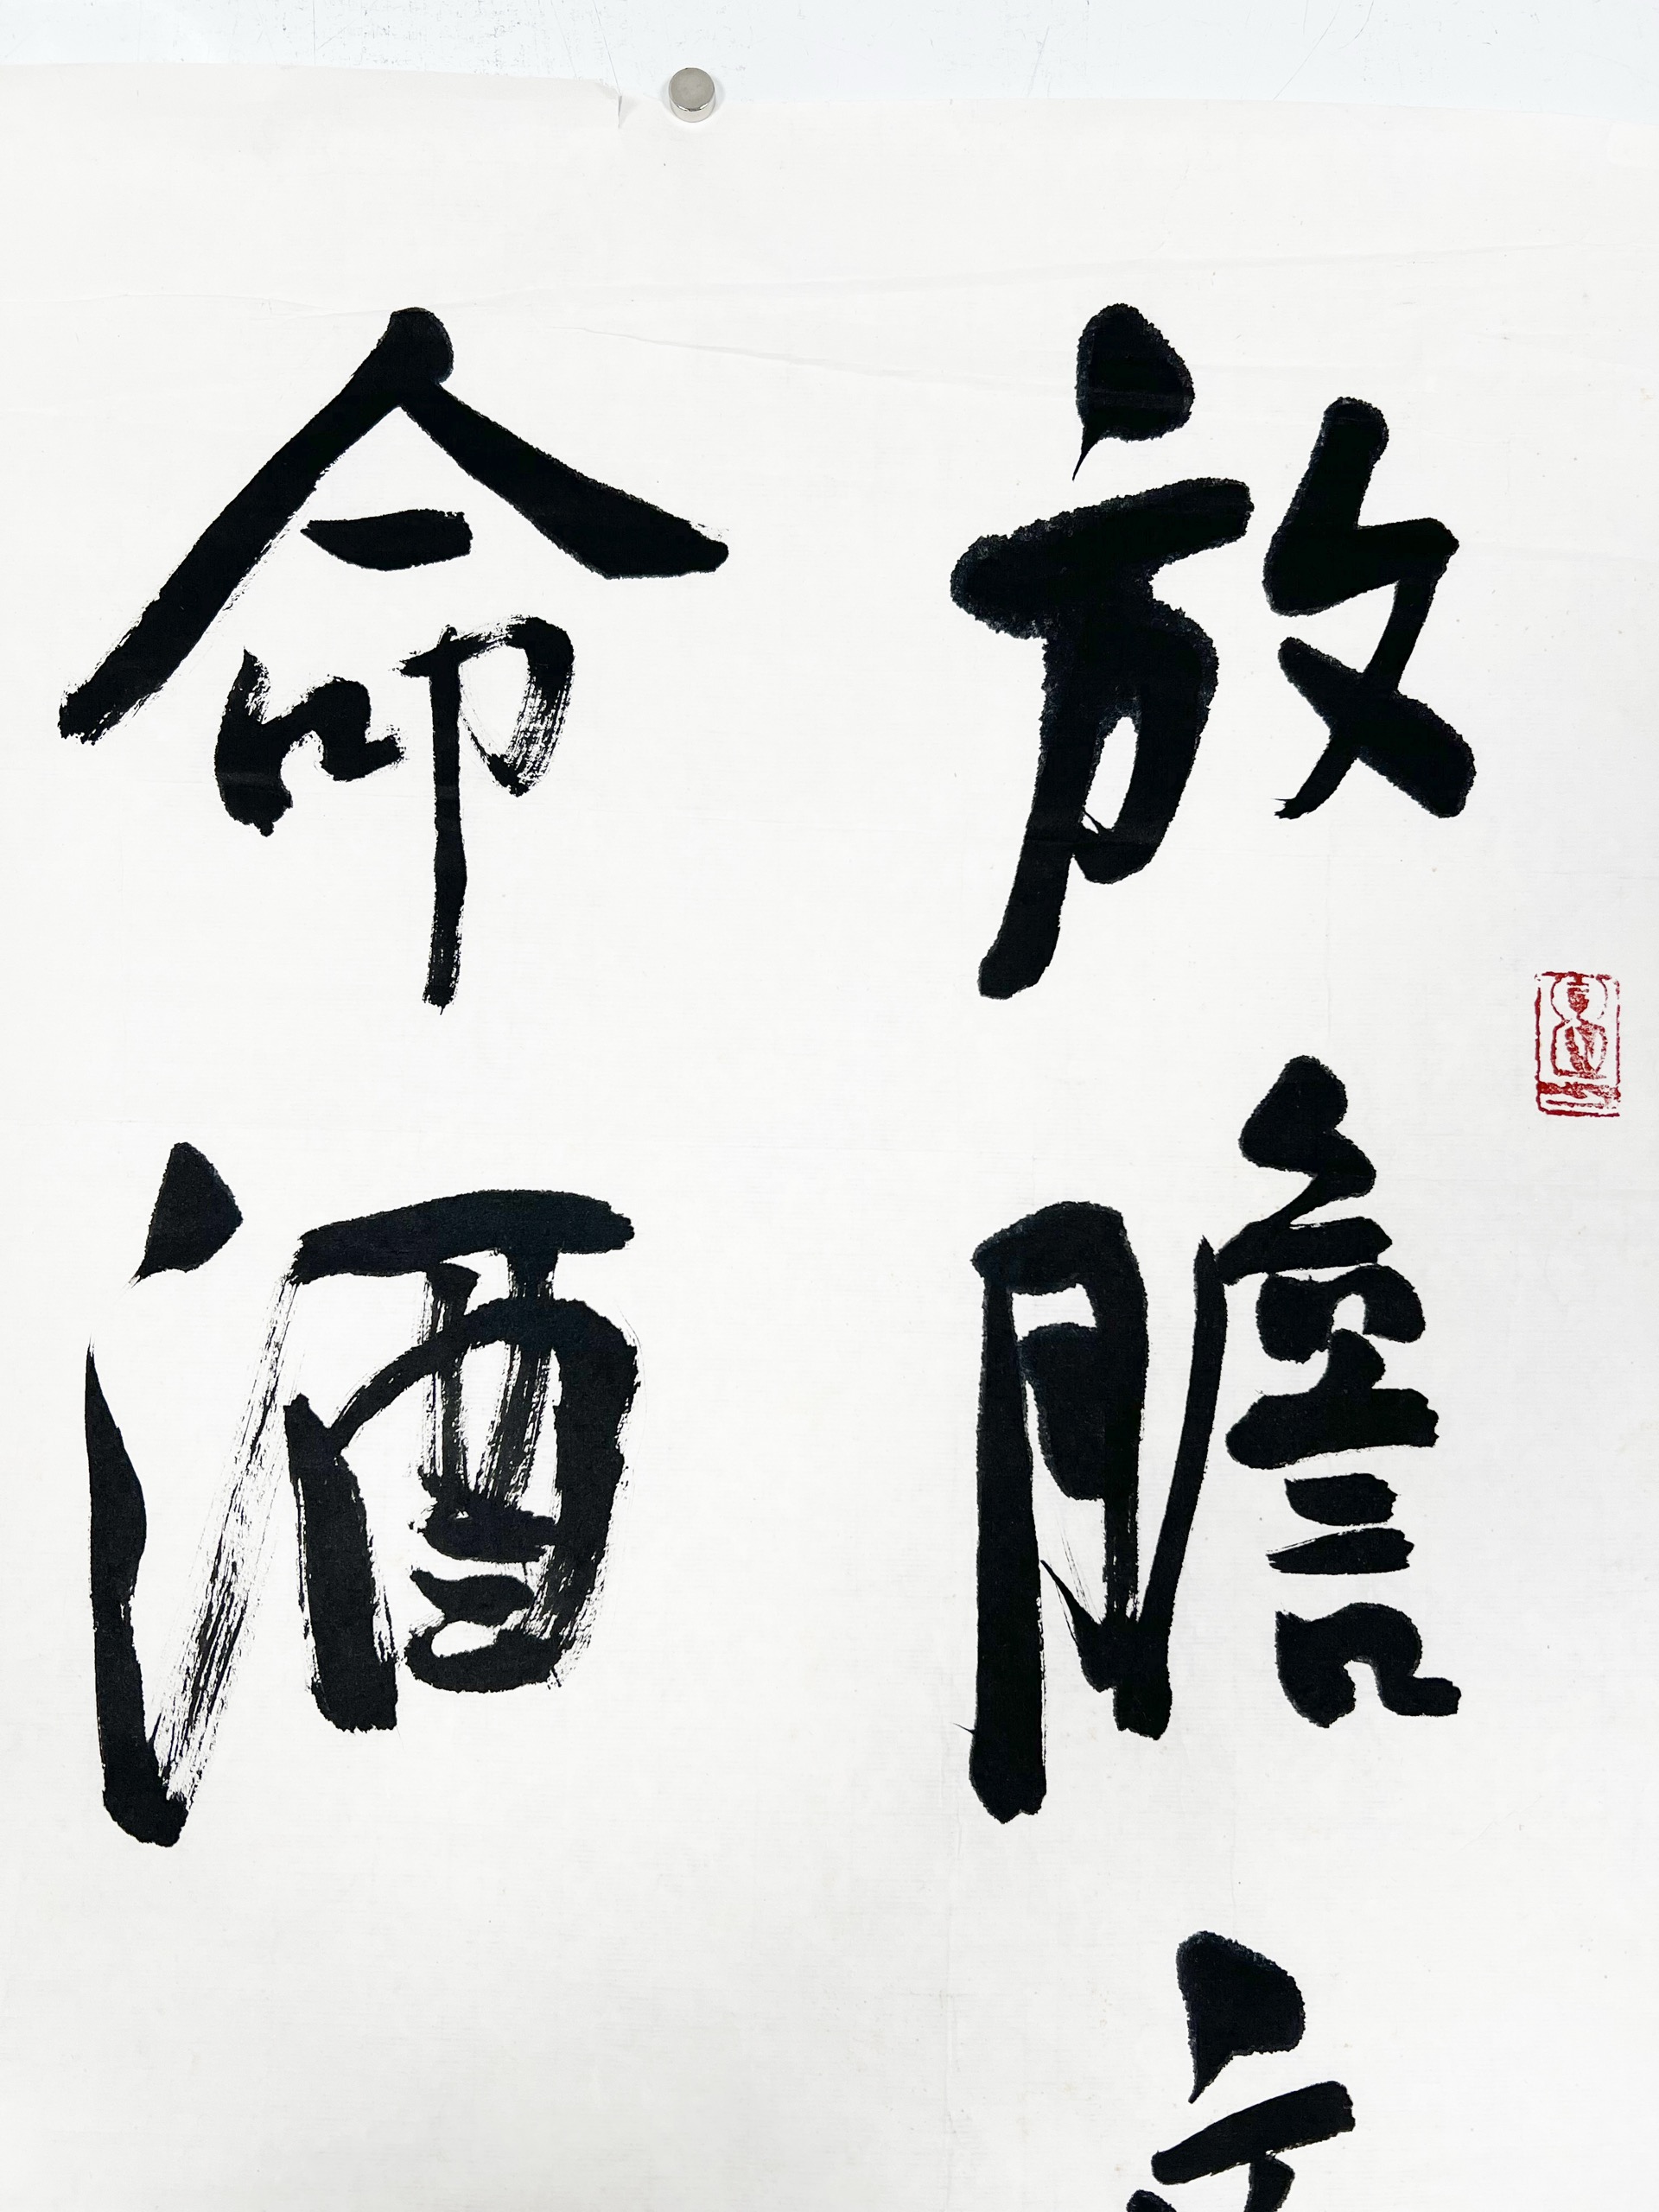 放膽
命酒